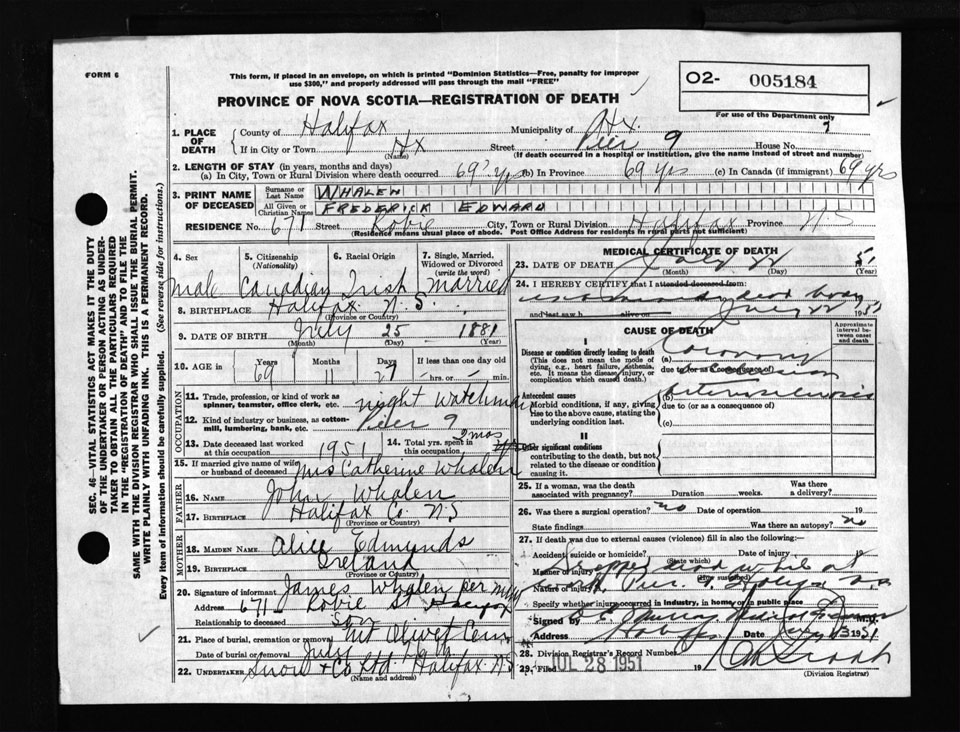 FORM 6
This form, if placed in an envelope, on which is printed "Dominion Statistics—Free, penalty for improper
use $300," and properly addressed will pass through the mail "FREE"
O2- 005184
For use of the Department only
PROVINCE OF NOVA SCOTIA—REGISTRATION OF DEATH
1. PLACE OF DEATH
County of Halifax Municipality of Hx.
If in City or Town Hx Street Pier 9 House No.
(Name) (If death occurred in a hospital or institution, give the name instead of street and number)
2. LENGTH OF STAY (in years, months and days)
(a) In City, Town or Rural Division where death occurred 69 yrs (b) In Province 69 yrs (c) In Canada (if immigrant) 69 yrs
3. PRINT NAME OF DECEASED
Surname or Last Name WHALEN
All Given or Christian Names FREDERICK EDWARD
RESIDENCE No. 671 Street Robie City, Town or Rural Division Halifax Province N.S
(Residence means usual place of abode. Post Office Address for residents in rural parts not sufficient)
4. Sex
Male
5. Citizenship (Nationality)
Canadian
6. Racial Origin
Irish
7. Single, Married, Widowed or Divorced (write the word)
Married
8. BIRTHPLACE Halifax N.S.
(Province or Country)
9. DATE OF BIRTH July 25 1881
(Month) (Day) (Year)
10. AGE in
Years 69
Months 11
Days 27
If less than one day old
— hrs. or — min.
OCCUPATION
11. Trade, profession, or kind of work as spinner, teamster, office clerk, etc. night watchman
12. Kind of industry or business, as cotton-mill, lumbering, bank, etc. Pier 9
13. Date deceased last worked at this occupation 1951
14. Total yrs. spent in this occupation 2 mos
15. If married give name of wife or husband of deceased Mrs Catherine Whalen
FATHER
16. NAME John Whalen
17. BIRTHPLACE Halifax Co. N.S
(Province or Country)
MOTHER
18. MAIDEN NAME Alice Edmunds
19. BIRTHPLACE Ireland
(Province or Country)
20. Signature of informant James Whalen per
Address 671 Robie St. Halifax
Relationship to deceased son
21. Place of burial, cremation or removal Mt Olivet Cem
Date of burial or removal July
22. UNDERTAKER Snow & Co Ltd. Halifax N.S
(Name and address)
MEDICAL CERTIFICATE OF DEATH
23. DATE OF DEATH July 22 51
(Month) (Day) (Year)
24. I HEREBY CERTIFY that I attended deceased from
dead body
and last saw h alive on July 22 1951
CAUSE OF DEATH
Approximate interval between onset and death
I
Disease or condition directly leading to death
(This does not mean the mode of dying, e.g., heart failure, asthenia, etc. It means the disease, injury, or complication which caused death.)
(a) Coronary
due to (or as consequence of) occlusion
Antecedent causes
Morbid conditions, if any, giving rise to the above cause, stating the underlying condition last.
(b) Arteriosclerosis
due to (or as a consequence of)
(c)
II
Other significant conditions
contributing to the death, but not related to the disease or condition causing it
25. If a woman, was the death associated with pregnancy? Duration weeks. Was there a delivery?
26. Was there a surgical operation? no Date of operation 19
State findings Was there an autopsy? no
27. If death was due to external causes (violence) fill in also the following:
Accident, suicide or homicide? Date of injury 19
(State which)
Manner of injury Dropped dead while at
(How sustained)
Nature of injury work Pier 9, Halifax N.S.
Specify whether injury occurred in industry, in home, or in public place
Signed by Murray Medical Examiner M.D.
Address Halifax Date July 23 1951
28. Division Registrar's Record Number
29. Filed JUL 28 1951 19
(Division Registrar)
SEC. 46—VITAL STATISTICS ACT MAKES IT THE DUTY
OF THE UNDERTAKER OR PERSON ACTING AS UNDER-
TAKER TO OBTAIN ALL THE PARTICULARS REQUIRED
IN THE "REGISTRATION OF DEATH" AND TO FILE THE
SAME WITH THE DIVISION REGISTRAR WHO SHALL ISSUE THE BURIAL PERMIT.
WRITE PLAINLY WITH UNFADING INK. THIS IS A PERMANENT RECORD.
Every item of information should be carefully supplied. (See reverse side for instructions.)